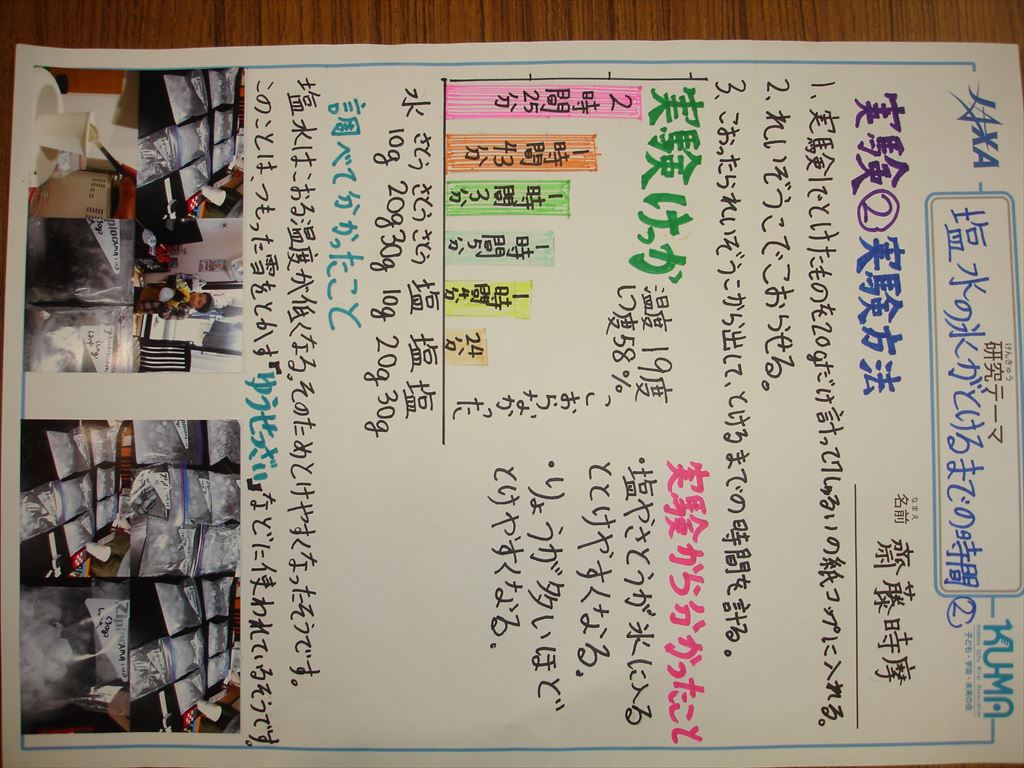 研究テーマ
けんきゅう
塩水の氷がとけるまでの時間②
KUMA
子ども・宇宙・未来の会
名前 齋藤時摩
なまえ
実験② 実験方法
1.実験1でとけたものを20gだけ計って1しゅるいの紙コップに入れる。
2.れいぞうこでこおらせる。
3.こおったられいぞうこから出して、とけるまでの時間を計る。
実験けっか
温度19度
しつ度58%
2時間25分
1時間43分
1時間3分
1時間5分
24分
こおらなかった
水 さとう10g さとう20g さとう30g 塩10g 塩20g 塩30g
実験から分かったこと
・塩やさとうが氷に入るととけやすくなる。
・りょうが多いほどとけやすくなる。
調べて分かったこと
塩水はこおる温度が低くなる。そのためとけやすくなったそうです。
このことはつもった雪をとかす「ゆうせつざい」などに使われているそうです。